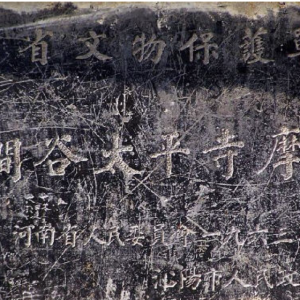 省文物保護單
間谷太平寺摩
河南省人民委員會一九六三
沁陽市人民政